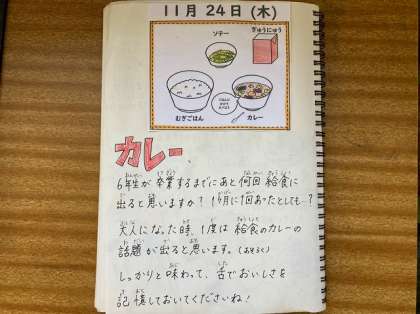 11月24日(木)
ソテー
ぎゅうにゅう
むぎごはん
カレー
カレー、
6年生が卒業するまでにあと何回給食に
出ると思いますか?1ヶ月に1回あったとしても…?
大人になった時、1度は給食のカレーの
話題が出ると思います。(おそらく)
しっかりと味わって、舌でおいしさを
記憶しておいてくださいね!